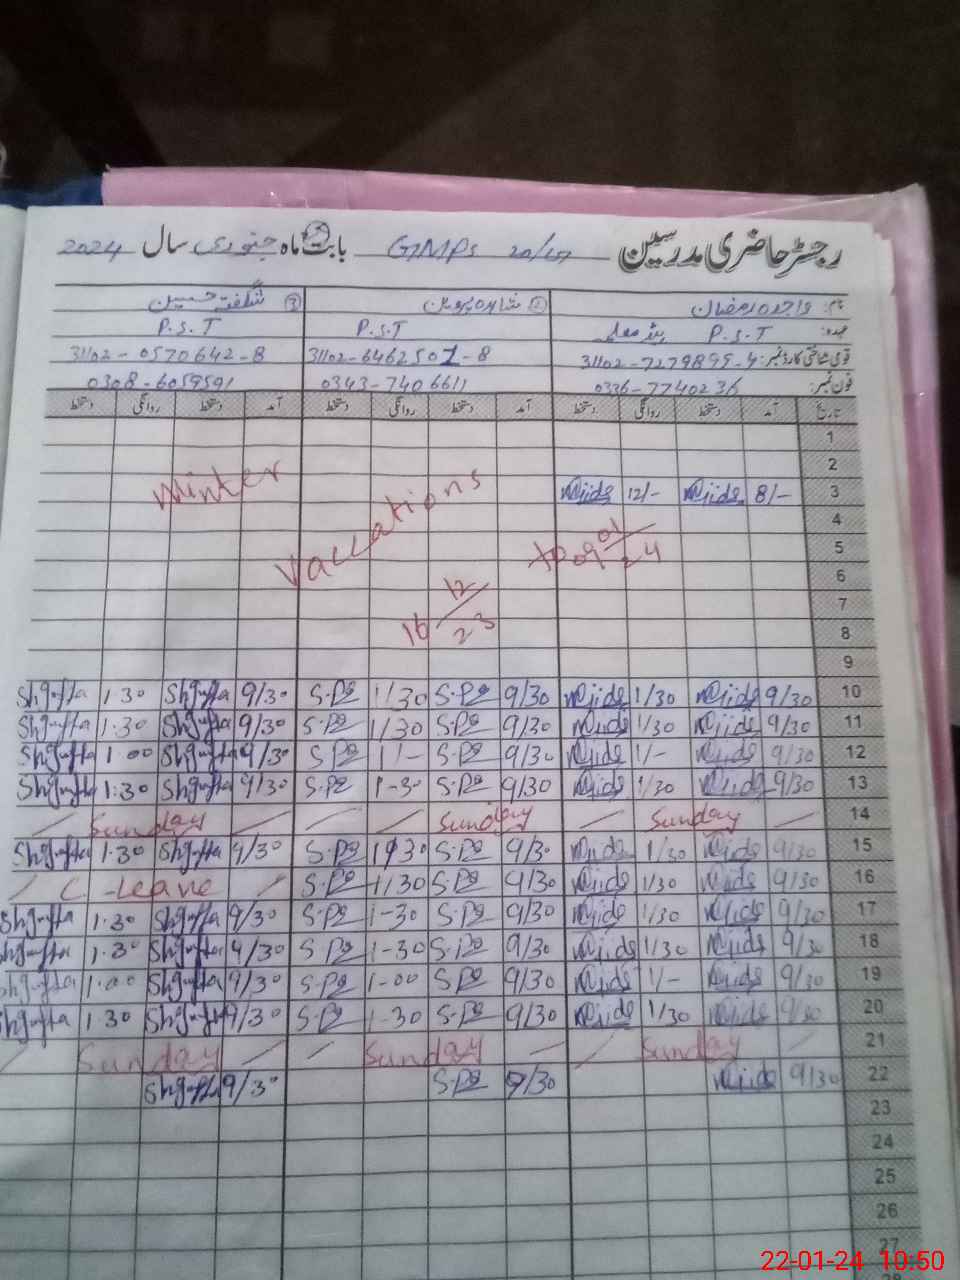 رجسٹر حاضری مدرسین GMPS 20/17 بابت ماہ جنوری سال 2024
نام: واجدہ رمضان ② شاہدہ پروین ③ شگفتہ حسین
عہدہ: P.S.T ہیڈ معلمہ P.S.T P.S.T
قومی شناختی کارڈ نمبر: 31102-7279895-4 31102-6462501-8 31102-0570642-8
فون نمبر: 0336-7740236 0343-7406611 0308-6059591
تاریخ آمد دستخط روانگی دستخط آمد دستخط روانگی دستخط آمد دستخط روانگی دستخط
1
2
3 8/- 12/-
Winter Vaccations 16 12/23 to 09 01/24
4
5
6
7
8
9
10 9/30 1/30 9/30 S.P 1/30 S.P 9/30 Shgufta 1.30 Shgufta
11 9/30 1/30 9/30 S.P 1/30 S.P 9/30 Shgufta 1.30 Shgufta
12 9/30 1/- 9/30 S.P 1/- S.P 9/30 Shgufta 1.00 Shgufta
13 9/30 1/30 9/30 S.P 1-30 S.P 9/30 Shgufta 1.30 Shgufta
14 Sunday Sunday Sunday
15 9/30 1/30 9/30 S.P 1/30 S.P 9/30 Shgufta 1.30 Shgufta
16 9/30 1/30 9/30 S.P 1/30 S.P C-Leave
17 9/30 1/30 9/30 S.P 1-30 S.P 9/30 Shgufta 1.30 Shgufta
18 9/30 1/30 9/30 S.P 1-30 S.P 9/30 Shgufta 1.30 Shgufta
19 9/30 1/- 9/30 S.P 1-00 S.P 9/30 Shgufta 1.00 Shgufta
20 9/30 1/30 9/30 S.P 1-30 S.P 9/30 Shgufta 1.30 Shgufta
21 Sunday Sunday Sunday
22 9/30 9/30 S.P 9/30 Shgufta
23
24
25
26
27
22-01-24 10:50